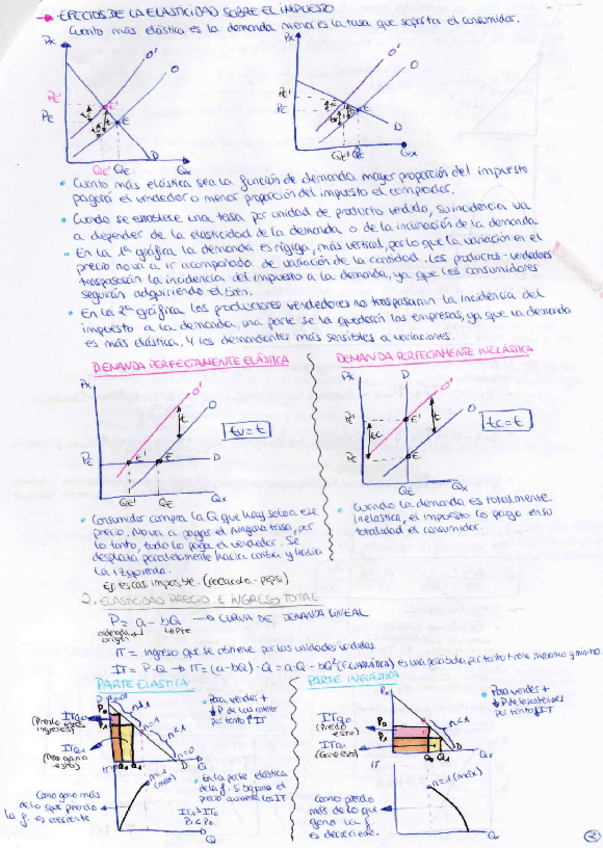 → EFECTOS DE LA ELASTICIDAD SOBRE EL IMPUESTO
Cuanto más elástica es la demanda menor es la tasa que soporta el consumidor.
Px
O'
O
PE'
PE
E'
E
tc
tv
t
D
QE' QE
Qx
Px
O'
O
PE'
PE
E
D
QE' QE
Qx
• Cuanto más elástica sea la función de demanda mayor proporción del impuesto
pagará el vendedor o menor proporción del impuesto el comprador.
• Cuando se establece una tasa por unidad de producto vendido, su incidencia va
a depender de la elasticidad de la demanda o de la inclinación de la demanda
• En la 1ª gráfica la demanda es rígiga, más vertical, por lo que la variación en el
precio no va a ir acompañada de variación de la cantidad. Los productos-vendedores
traspasarán la incidencia del impuesto a la demanda, ya que los consumidores
seguirán adquiriendo el bien.
• En la 2ª gráfica los productores vendedores no traspasaran la incidencia del
impuesto a la demanda, una parte se la quedarán las empresas, ya que la demanda
es más elástica, y los demandantes más sensibles a variaciones.
DEMANDA PERFECTAMENTE ELÁSTICA
Px
O'
O
t
tv=t
PE
E'
E
D
QE' QE
Qx
• Consumidor compra la Q que hay solo a ese
precio. No va a pagar él ninguna tasa, por
lo tanto, todo lo paga el vendedor. Se
desplaza paralelamente hacia arriba y hacia
la izquierda.
Es escas imposte. (cocacola-pepsi)
DEMANDA PERFECTAMENTE INELÁSTICA
Px
D
O'
O
t
tc=t
PE'
E'
tc
PE
E
QE
Qx
• Cuando la demanda es totalmente
inelástica, el impuesto lo paga en su
totalidad el consumidor.
2. ELASTICIDAD PRECIO E INGRESO TOTAL
P = a - bQ → CURVA DE DEMANDA LINEAL
ordenada origen
Pte
IT = ingreso que se obtiene por las unidades vendidas
IT = P·Q → IT=(a-bQ)·Q = a·Q - bQ² (F. CUADRÁTICA) es una parábola, por tanto tiene máximo y mínimo.
PARTE ELÁSTICA
P
P0
P1
ITQ0
(Pierdo ese ingreso)
ITQ1
(Pero gano esto)
n>1
n=1
n<1
n=0
D
Q0 Q1
Q
IT
n=1 (máx)
Como gano más
de lo que pierdo
la f. es creciente
Q
• Para vender +
↓ P de las anteriores
por tanto ↑ IT
• En la parte elástica
de la f. si bajamos el
precio aumenta los IT
IT1 > IT0
P1 < P0
PARTE INELÁSTICA
P0
P1
ITQ0
(Pierdo esto)
ITQ1
(Gano esto)
n>1
n<1
D
Q0 Q1
Qx
IT
n=1 (máx)
Como pierdo
más de lo que
gano la f.
es decreciente.
Q
• Para vender +
↓ P de las anteriores
por tanto ↓ IT